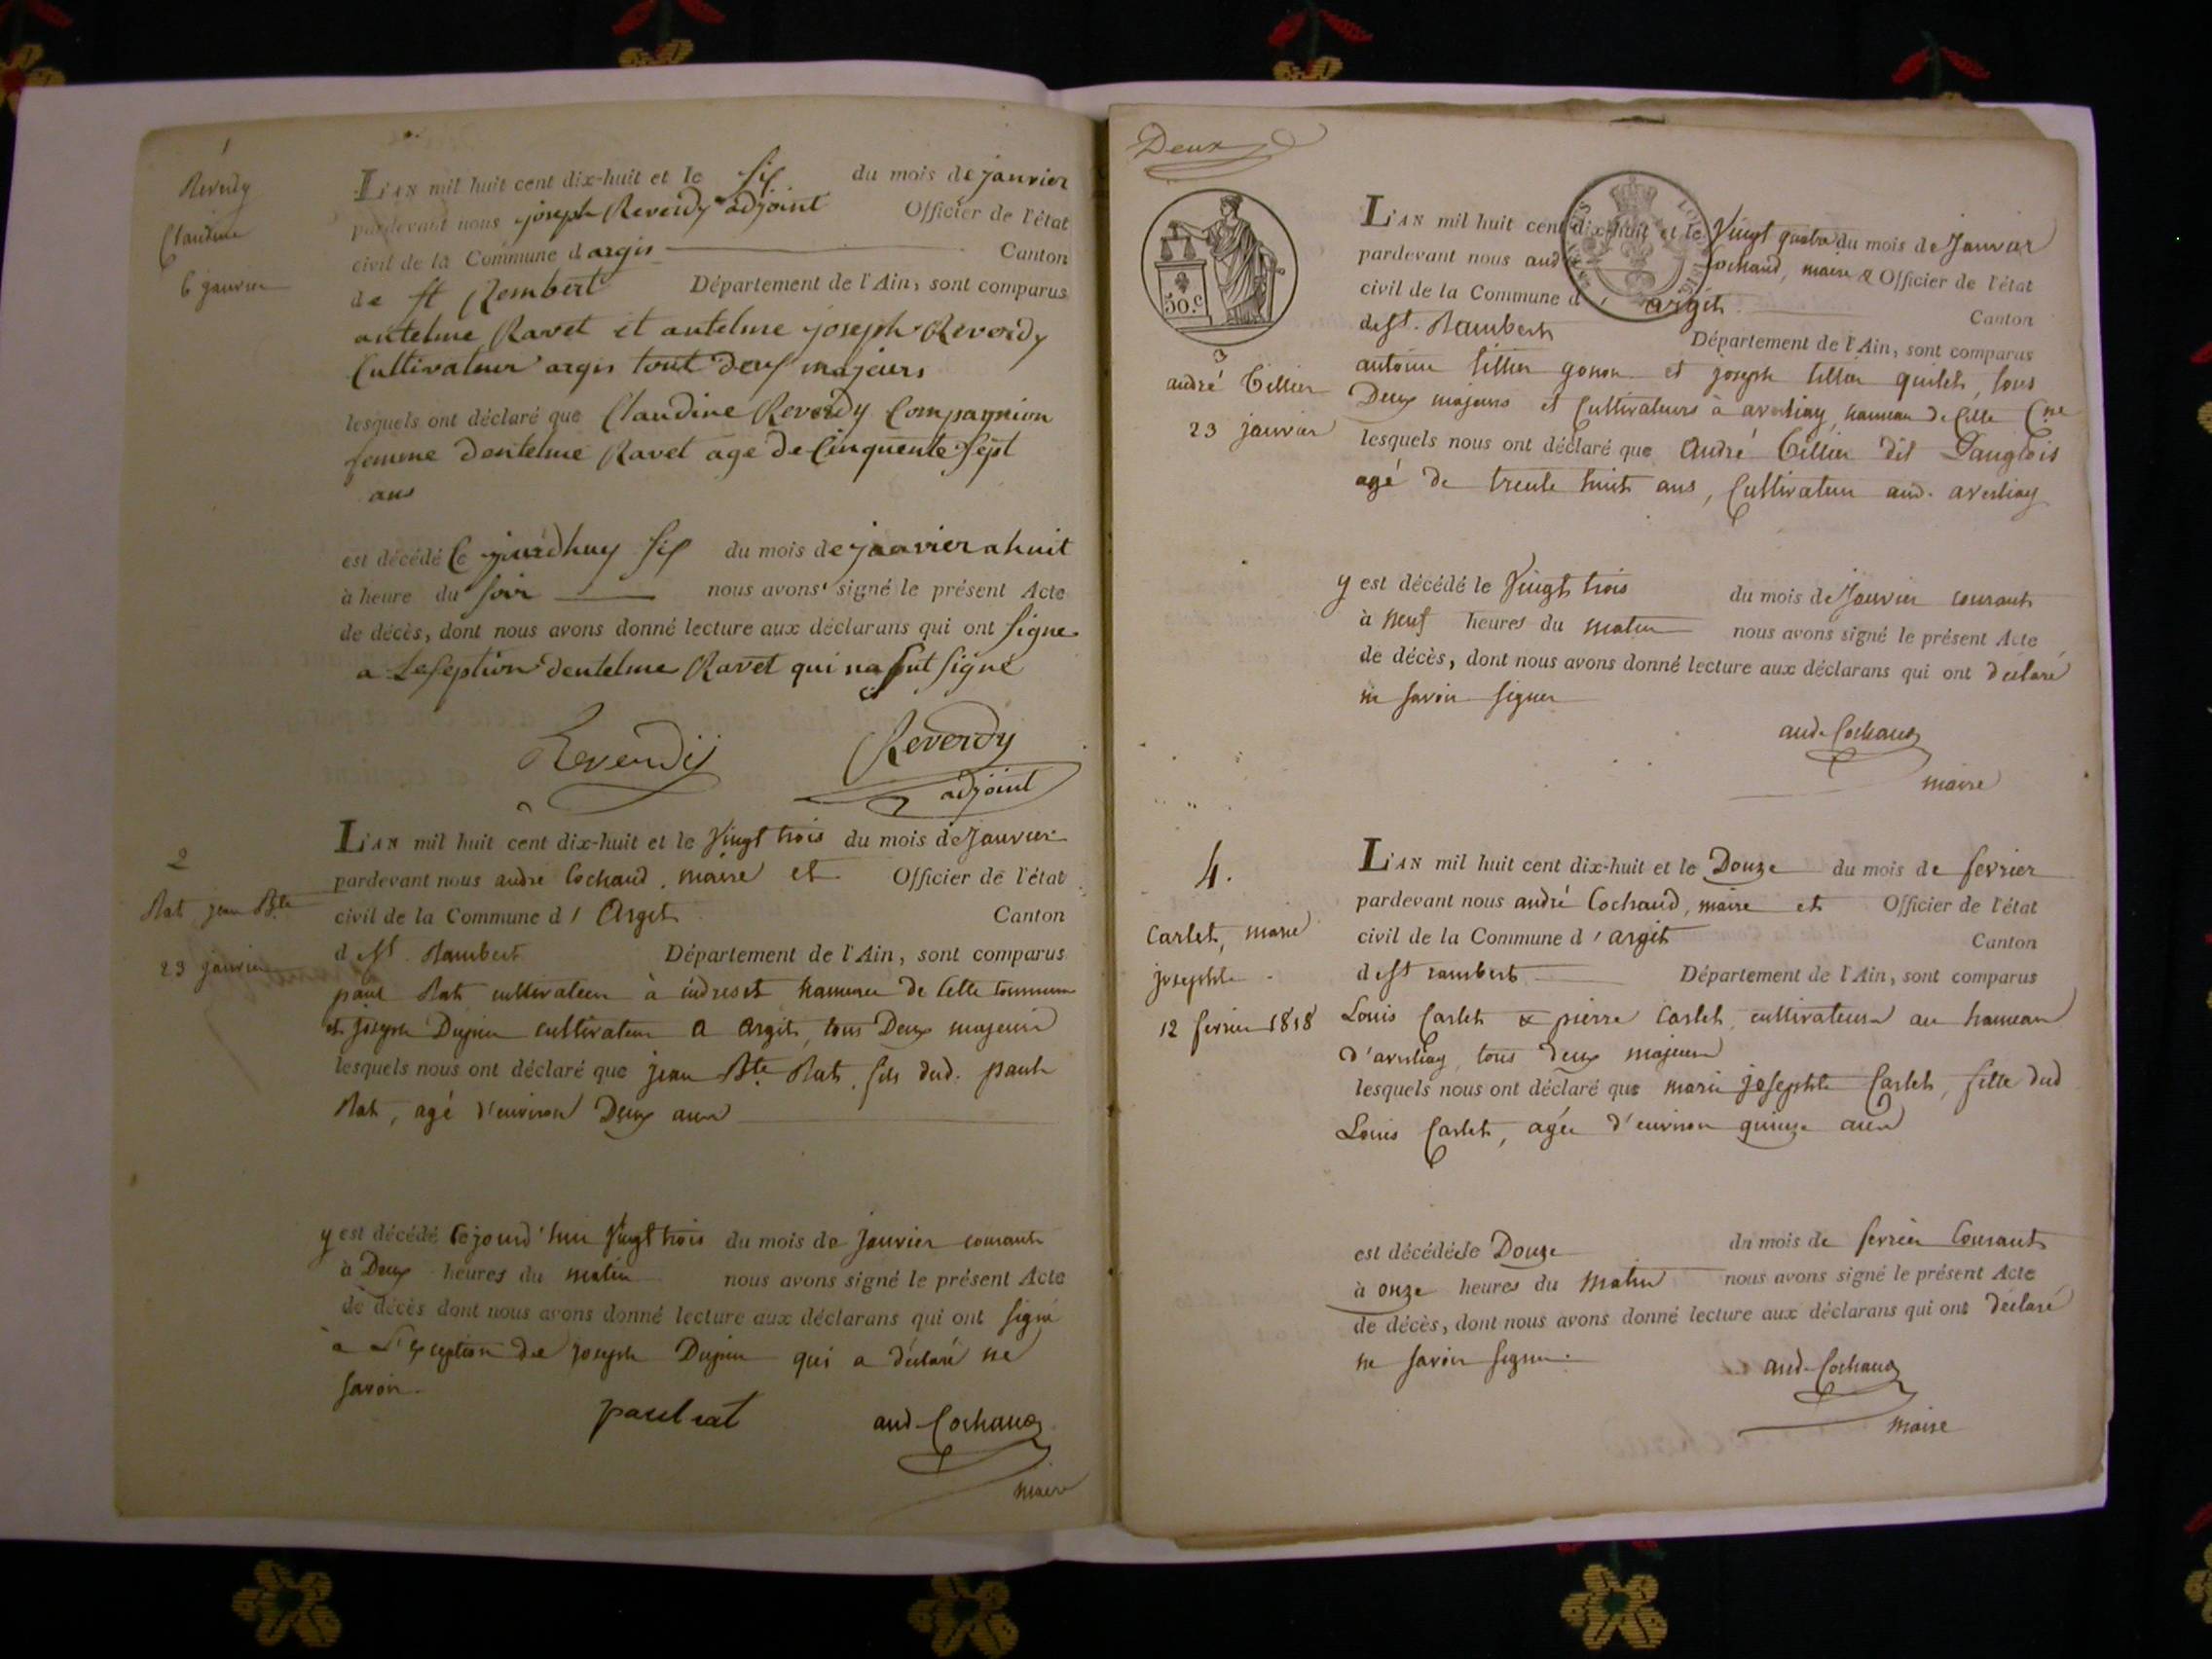 1
Reverdy
Claudine
6 janvier
L'AN mil huit cent dix-huit et le six du mois de janvier
pardevant nous joseph Reverdy adjoint Officier de l'état
civil de la Commune d argis Canton
de st Rembert Département de l'Ain, sont comparus
antelme Ravet et antelme joseph Reverdy
Cultivateur argis tout deux majeurs
lesquels ont déclaré que Claudine Reverdy Compagnion
femme dentelme Ravet age de Cinquente sept
ans
est décédé Ce jourdhuy six du mois de janvier a huit
à heure du soir nous avons signé le présent Acte
de décès, dont nous avons donné lecture aux déclarans qui ont signe
a Leseption dentelme Ravet qui na sut signé
Reverdy Reverdy
adjoint
2
Rat jean Bte
23 janvier
L'AN mil huit cent dix-huit et le Vingt trois du mois de Janvier
pardevant nous andré Cochaud, maire et Officier de l'état
civil de la Commune d' Argit Canton
de St. Rambert Département de l'Ain, sont comparus
paul Rat cultivateur à indrieset hameau de Cette Commune
et joseph Dupin cultivateur à Argit, tous Deux majeurs
lesquels nous ont déclaré que jean Bte Rat, fils dud. paul
Rat, agé d'environ Deux ans
y est décédé Cejourd'hui Vingt trois du mois de Janvier courant
à Deux heures du matin nous avons signé le présent Acte
de décès dont nous avons donné lecture aux déclarans qui ont signé
à L'exception de joseph Dupin qui a déclaré ne
savoir.
paul rat and. Cochaud
maire
Deux
50.c
3
andré Tillier
23 janvier
L'AN mil huit cent dix-huit et le Vingt quatre du mois de Janvier
pardevant nous and Cochaud, maire & Officier de l'état
civil de la Commune d' argit Canton
de St. Rambert Département de l'Ain, sont comparus
antoine tillier gonon et joseph tillier quilet, tous
Deux majeurs et Cultivateurs à averliay, hameau de Cette Cne
lesquels nous ont déclaré que André Tillier dit Langlois
agé de trente huit ans, Cultivateur aud. averliay
y est décédé le Vingt trois du mois de Janvier courant
à neuf heures du matin nous avons signé le présent Acte
de décès, dont nous avons donné lecture aux déclarans qui ont déclaré
ne savoir signer
and. Cochaud
maire
4.
Carlet, marie
josephte
12 fevrier 1818
L'AN mil huit cent dix-huit et le Douze du mois de fevrier
pardevant nous andré Cochaud, maire et Officier de l'état
civil de la Commune d' argit Canton
de St rambert Département de l'Ain, sont comparus
Louis Carlet & pierre Carlet, cultivateurs au hameau
d'averliay, tous deux majeurs
lesquels nous ont déclaré que marie josephte Carlet, fille dud
Louis Carlet, agée d'environ quinze ans
est décédée le Douze du mois de fevrier Courant
à onze heures du matin nous avons signé le présent Acte
de décès, dont nous avons donné lecture aux déclarans qui ont déclaré
ne savoir signer.
and. Cochaud
maire